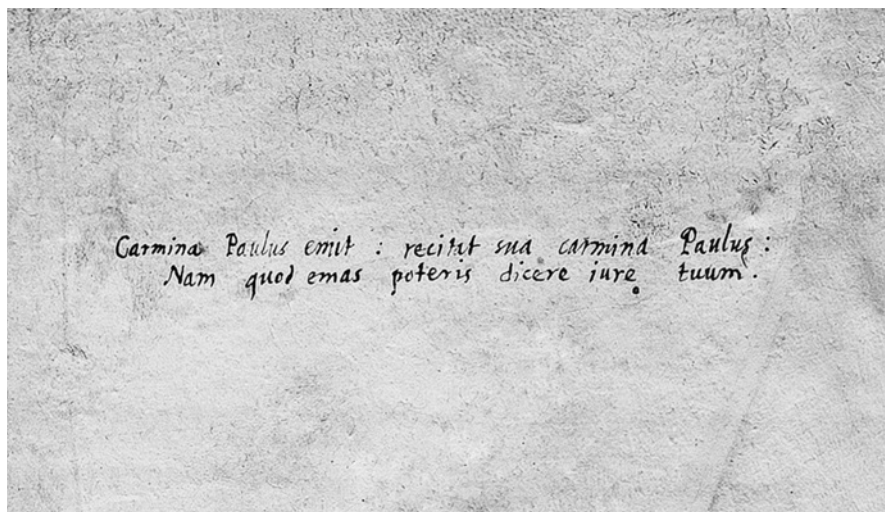 Carmina Paulus emit : recitat sua carmina Paulus :
Nam quod emas poteris dicere iure tuum .